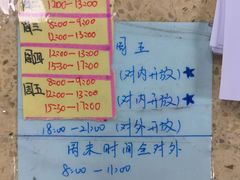 12:00 — 13:00
周三
8:00 — 9:00
12:00 — 13:00
周四
12:00 — 13:00
15:30 — 17:00
周五
8:00 — 9:00
12:00 — 13:00
15:30 — 17:00
周五
(对内开放)★
(对内开放)★
18:00 — 21:00 (对外开放)
周末时间全对外
8:00 — 11:00